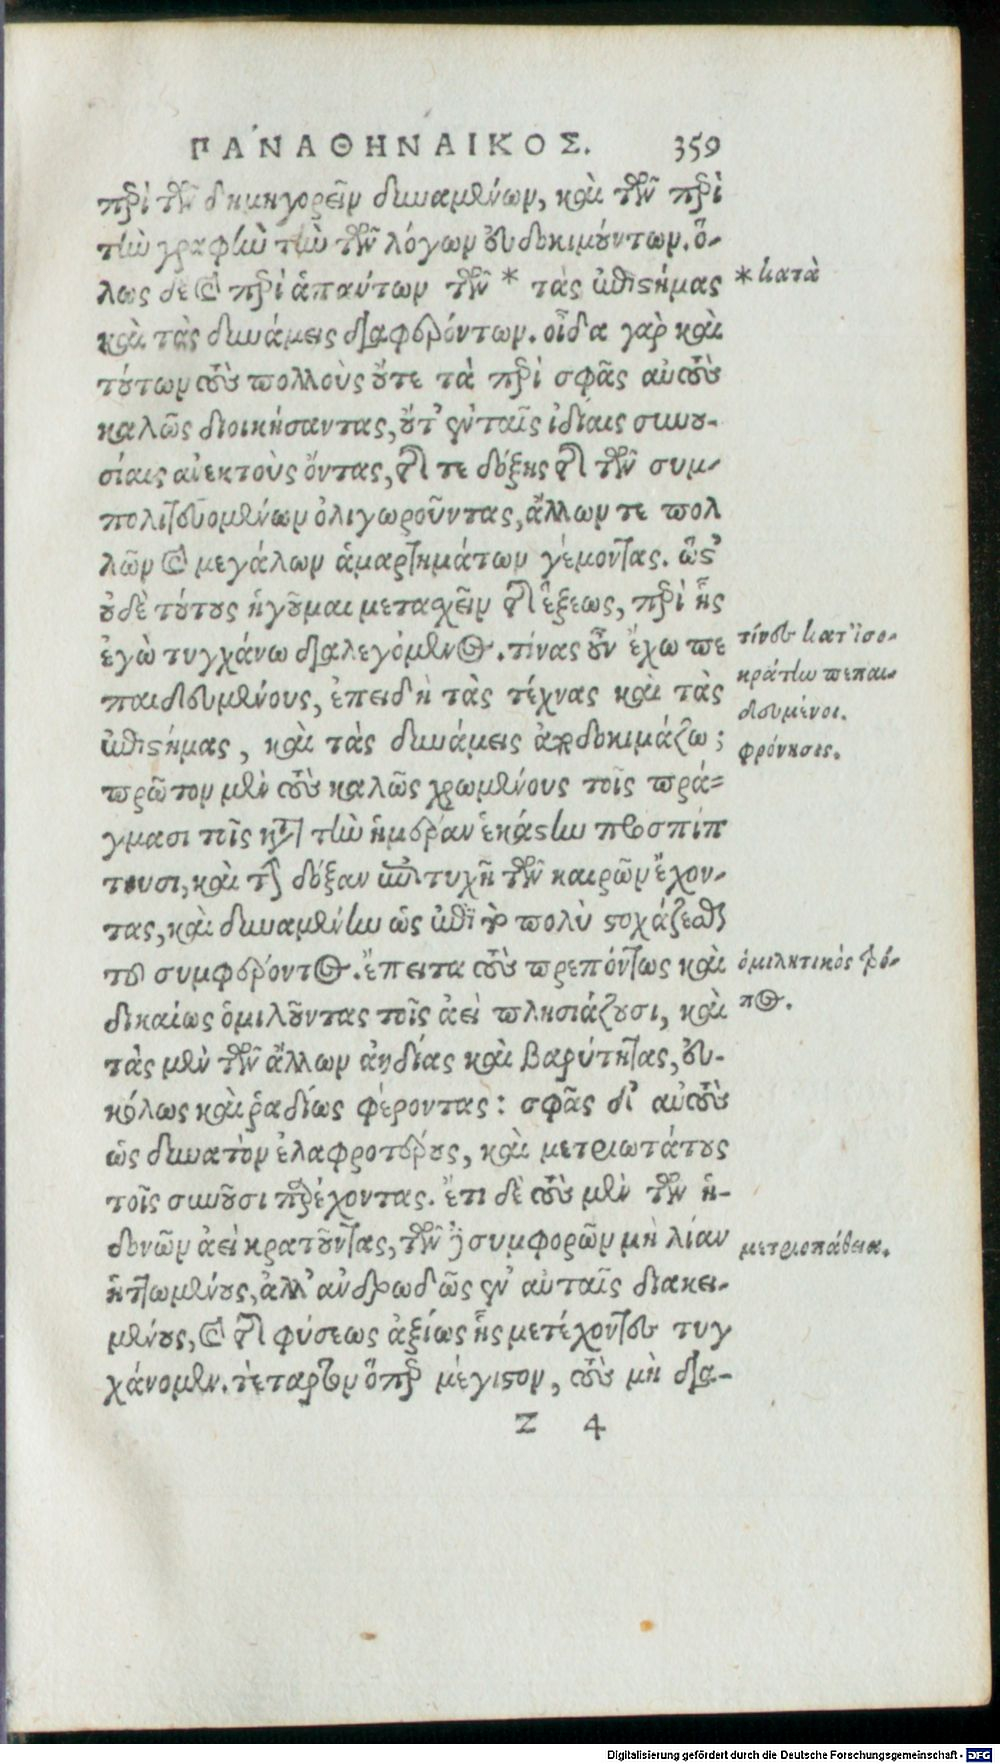 ΠΑΝΑΘΗΝΑΙΚΟΣ. 359
περὶ τῶν δημηγορεῖν δυναμένων, καὶ τῶν περὶ
τὴν γραφὴν τὴν τῶν λόγων εὐδοκιμούντων. ὅ-
λως δὲ καὶ περὶ ἁπάντων τῶν * τὰς ἐπιστήμας
* κατὰ
καὶ τὰς δυνάμεις διαφερόντων. οἶδα γὰρ καὶ
τούτων τοὺς πολλοὺς οὔτε τὰ περὶ σφᾶς αὐτοὺς
καλῶς διοικήσαντας, οὔτ' ἐν ταῖς ἰδίαις συνου-
σίαις ἀνεκτοὺς ὄντας, τῆς τε δόξης τῆς τῶν συμ-
πολιτευομένων ὀλιγωροῦντας, ἄλλων τε πολ
λῶν καὶ μεγάλων ἁμαρτημάτων γέμοντας. ὥστ'
οὐδὲ τούτους ἡγοῦμαι μετασχεῖν τῆς ἕξεως, περὶ ἧς
ἐγὼ τυγχάνω διαλεγόμενος. τίνας οὖν ἔχω πε
τίνες κατ' ἰσο-
κράτην πεπαι-
δευμένοι.
παιδευμένους, ἐπειδὴ τὰς τέχνας καὶ τὰς
ἐπιστήμας, καὶ τὰς δυνάμεις ἀποδοκιμάζω;
φρόνησις.
πρῶτον μὲν τοὺς καλῶς χρωμένους τοῖς πρά-
γμασι τοῖς κατὰ τὴν ἡμέραν ἑκάστην προσπίπ
τουσι, καὶ τὴν δόξαν ἐπιτυχῆ τῶν καιρῶν ἔχον-
τας, καὶ δυναμένην ὡς ἐπὶ τὸ πολὺ στοχάζεσθαι
τοῦ συμφέροντος. ἔπειτα τοὺς πρεπόντως καὶ
ὁμιλητικὸς τρό-
πος.
δικαίως ὁμιλοῦντας τοῖς ἀεὶ πλησιάζουσι, καὶ
τὰς μὲν τῶν ἄλλων ἀηδίας καὶ βαρύτητας, εὐ-
κόλως καὶ ῥαδίως φέροντας: σφᾶς δ' αὐτοὺς
ὡς δυνατὸν ἐλαφροτέρους, καὶ μετριωτάτους
τοῖς συνοῦσι παρέχοντας. ἔτι δὲ τοὺς μὲν τῶν ἡ-
δονῶν ἀεὶ κρατοῦντας, τῶν δὲ συμφορῶν μὴ λίαν
μετριοπάθεια.
ἡττωμένους, ἀλλ' ἀνδρωδῶς ἐν αὐταῖς διακει-
μένους, καὶ τῆς φύσεως ἀξίως ἧς μετέχοντες τυγ
χάνομεν. τέταρτον ὅπερ μέγιστον, τοὺς μὴ δια-
Z 4
Digitalisierung gefördert durch die Deutsche Forschungsgemeinschaft - DFG